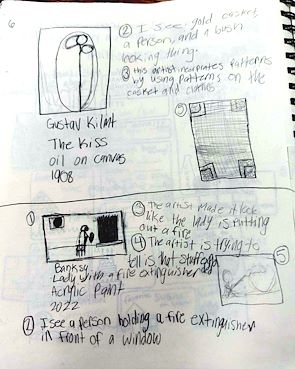 6
② I see gold casket,
a person, and a bush
looking thing.
③ this artist incorporates patterns
by using patterns on the
casket and clothes
Gustav Kilmt
The Kiss
oil on canvas
1908
⑤
①
③ The artist made it look
like the lady is putting
out a fire
④ The artist is trying to
tell is hut stuff
⑤
Banksy
Lady with a fire extinguisher
Acrylic Paint
2022
② I see a person holding a fire extinguisher
in front of a window